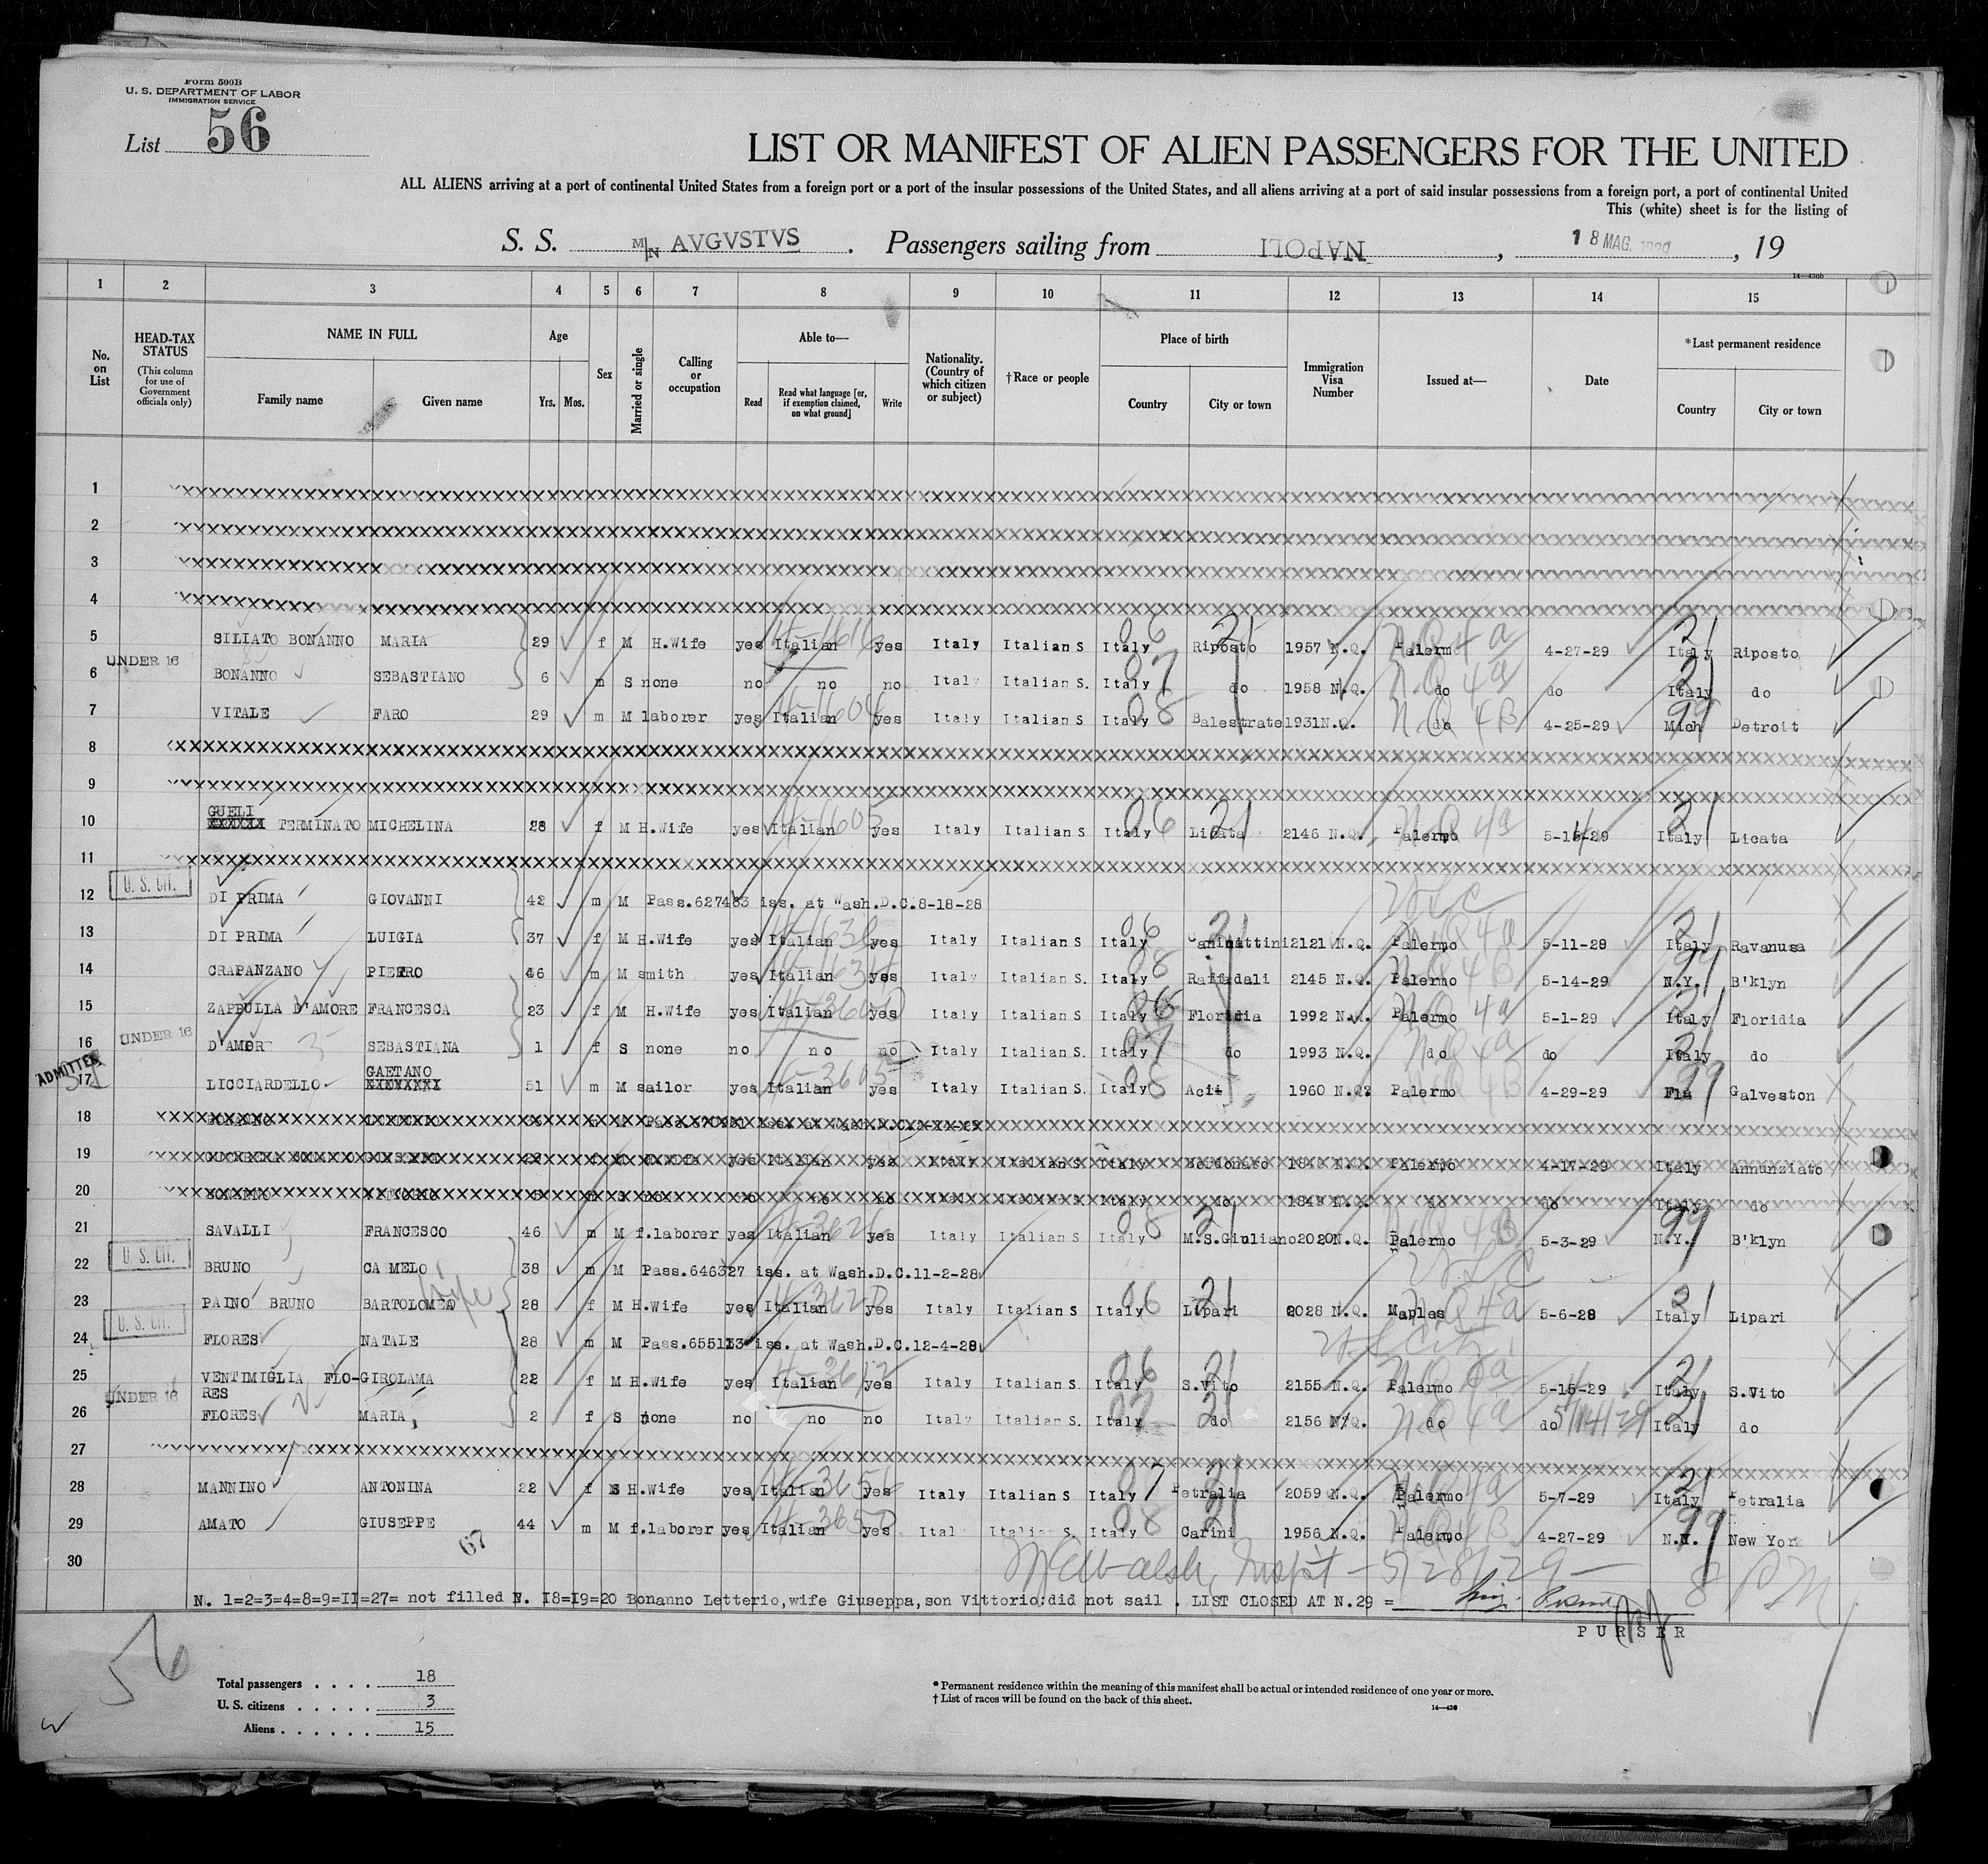 Form 500B
U. S. DEPARTMENT OF LABOR
IMMIGRATION SERVICE
List 56
LIST OR MANIFEST OF ALIEN PASSENGERS FOR THE UNITED
ALL ALIENS arriving at a port of continental United States from a foreign port or a port of the insular possessions of the United States, and all aliens arriving at a port of said insular possessions from a foreign port, a port of continental United
This (white) sheet is for the listing of
S. S. M/N AVGVSTVS . Passengers sailing from NAPOLI , 18 MAG. 1929 , 19
14—430b
1 2 3 4 5 6 7 8 9 10 11 12 13 14 15
No. on List
HEAD-TAX STATUS (This column for use of Government officials only)
NAME IN FULL Family name Given name
Age Yrs. Mos.
Sex
Married or single
Calling or occupation
Able to— Read Read what language [or, if exemption claimed, on what ground] Write
Nationality. (Country of which citizen or subject)
†Race or people
Place of birth Country City or town
Immigration Visa Number
Issued at—
Date
*Last permanent residence Country City or town
1
2
3
4
5 SILIATO BONANNO MARIA 29 f M H.Wife yes Italian yes Italy Italian S Italy Riposto 1957 N.Q. Palermo 4-27-29 Italy Riposto
UNDER 16
6 BONANNO SEBASTIANO 6 m S none no no no Italy Italian S. Italy do 1958 N.Q. do do Italy do
7 VITALE FARO 29 m M laborer yes Italian yes Italy Italian S Italy Balestrate 1931 N.Q. do 4-25-29 Mich Detroit
8
9
GUELI
10 TERMINATO MICHELINA 28 f M H.Wife yes Italian yes Italy Italian S Italy Licata 2146 N.Q. Palermo 5-14-29 Italy Licata
11
U. S. CIT.
12 DI PRIMA GIOVANNI 42 m M Pass.627483 iss. at Wash.D.C.8-18-28
13 DI PRIMA LUIGIA 37 f M H.Wife yes Italian yes Italy Italian S Italy Canicattini 2121 N.Q. Palermo 5-11-29 Italy Ravanusa
14 CRAPANZANO PIETRO 46 m M smith yes Italian yes Italy Italian S. Italy Raffadali 2145 N.Q. Palermo 5-14-29 N.Y. B'klyn
15 ZAPPULLA D'AMORE FRANCESCA 23 f M H.Wife yes Italian yes Italy Italian S Italy Floridia 1992 N.Q. Palermo 5-1-29 Italy Floridia
UNDER 16
16 D'AMORE SEBASTIANA 1 f S none no no no Italy Italian S. Italy do 1993 N.Q. do do Italy do
ADMITTED
GAETANO
17 LICCIARDELLO 51 m M sailor yes Italian yes Italy Italian S. Italy Aci 1960 N.Q. Palermo 4-29-29 Fla Galveston
18
19 yes Italian yes Italy Italian S Italy Palermo 4-17-29 Italy Annunziato
20 m S no no no Italy do 1849 N.Q. do do Italy do
21 SAVALLI FRANCESCO 46 m M f.laborer yes Italian yes Italy Italian S Italy M.S.Giuliano 2020 N.Q. Palermo 5-3-29 N.Y. B'klyn
U. S. CIT.
22 BRUNO CA MELO 38 m M Pass.646327 iss. at Wash.D.C.11-2-28
wife
23 PAINO BRUNO BARTOLOMEA 28 f M H.Wife yes Italian yes Italy Italian S Italy Lipari 2028 N.Q. Naples 5-6-28 Italy Lipari
U. S. CIT.
24 FLORES NATALE 28 m M Pass.655113 iss. at Wash.D.C.12-4-28
25 VENTIMIGLIA FLO- GIROLAMA 22 f M H.Wife yes Italian yes Italy Italian S. Italy S.Vito 2155 N.Q. Palermo 5-15-29 Italy S.Vito
RES
UNDER 16
26 FLORES MARIA 2 f S none no no no Italy Italian S. Italy do 2156 N.Q. do do 5/14/29 Italy do
27
28 MANNINO ANTONINA 22 f S H.Wife yes Italian yes Italy Italian S Italy Petralia 2059 N.Q. Palermo 5-7-29 Italy Petralia
29 AMATO GIUSEPPE 44 m M f.laborer yes Italian yes Ital Italian S. Italy Carini 1956 N.Q. Palermo 4-27-29 N.Y. New York
67
30
Inspt - 5/28/29 - 8 PM
N. 1=2=3=4=8=9=II=27= not filled N. I8=I9=20 Bonanno Letterio,wife Giuseppa,son Vittorio:did not sail . LIST CLOSED AT N.29 =
PURSER
56
Total passengers . . . . 18
U. S. citizens . . . . . 3
Aliens . . . . . . 15
* Permanent residence within the meaning of this manifest shall be actual or intended residence of one year or more.
† List of races will be found on the back of this sheet.
14—430